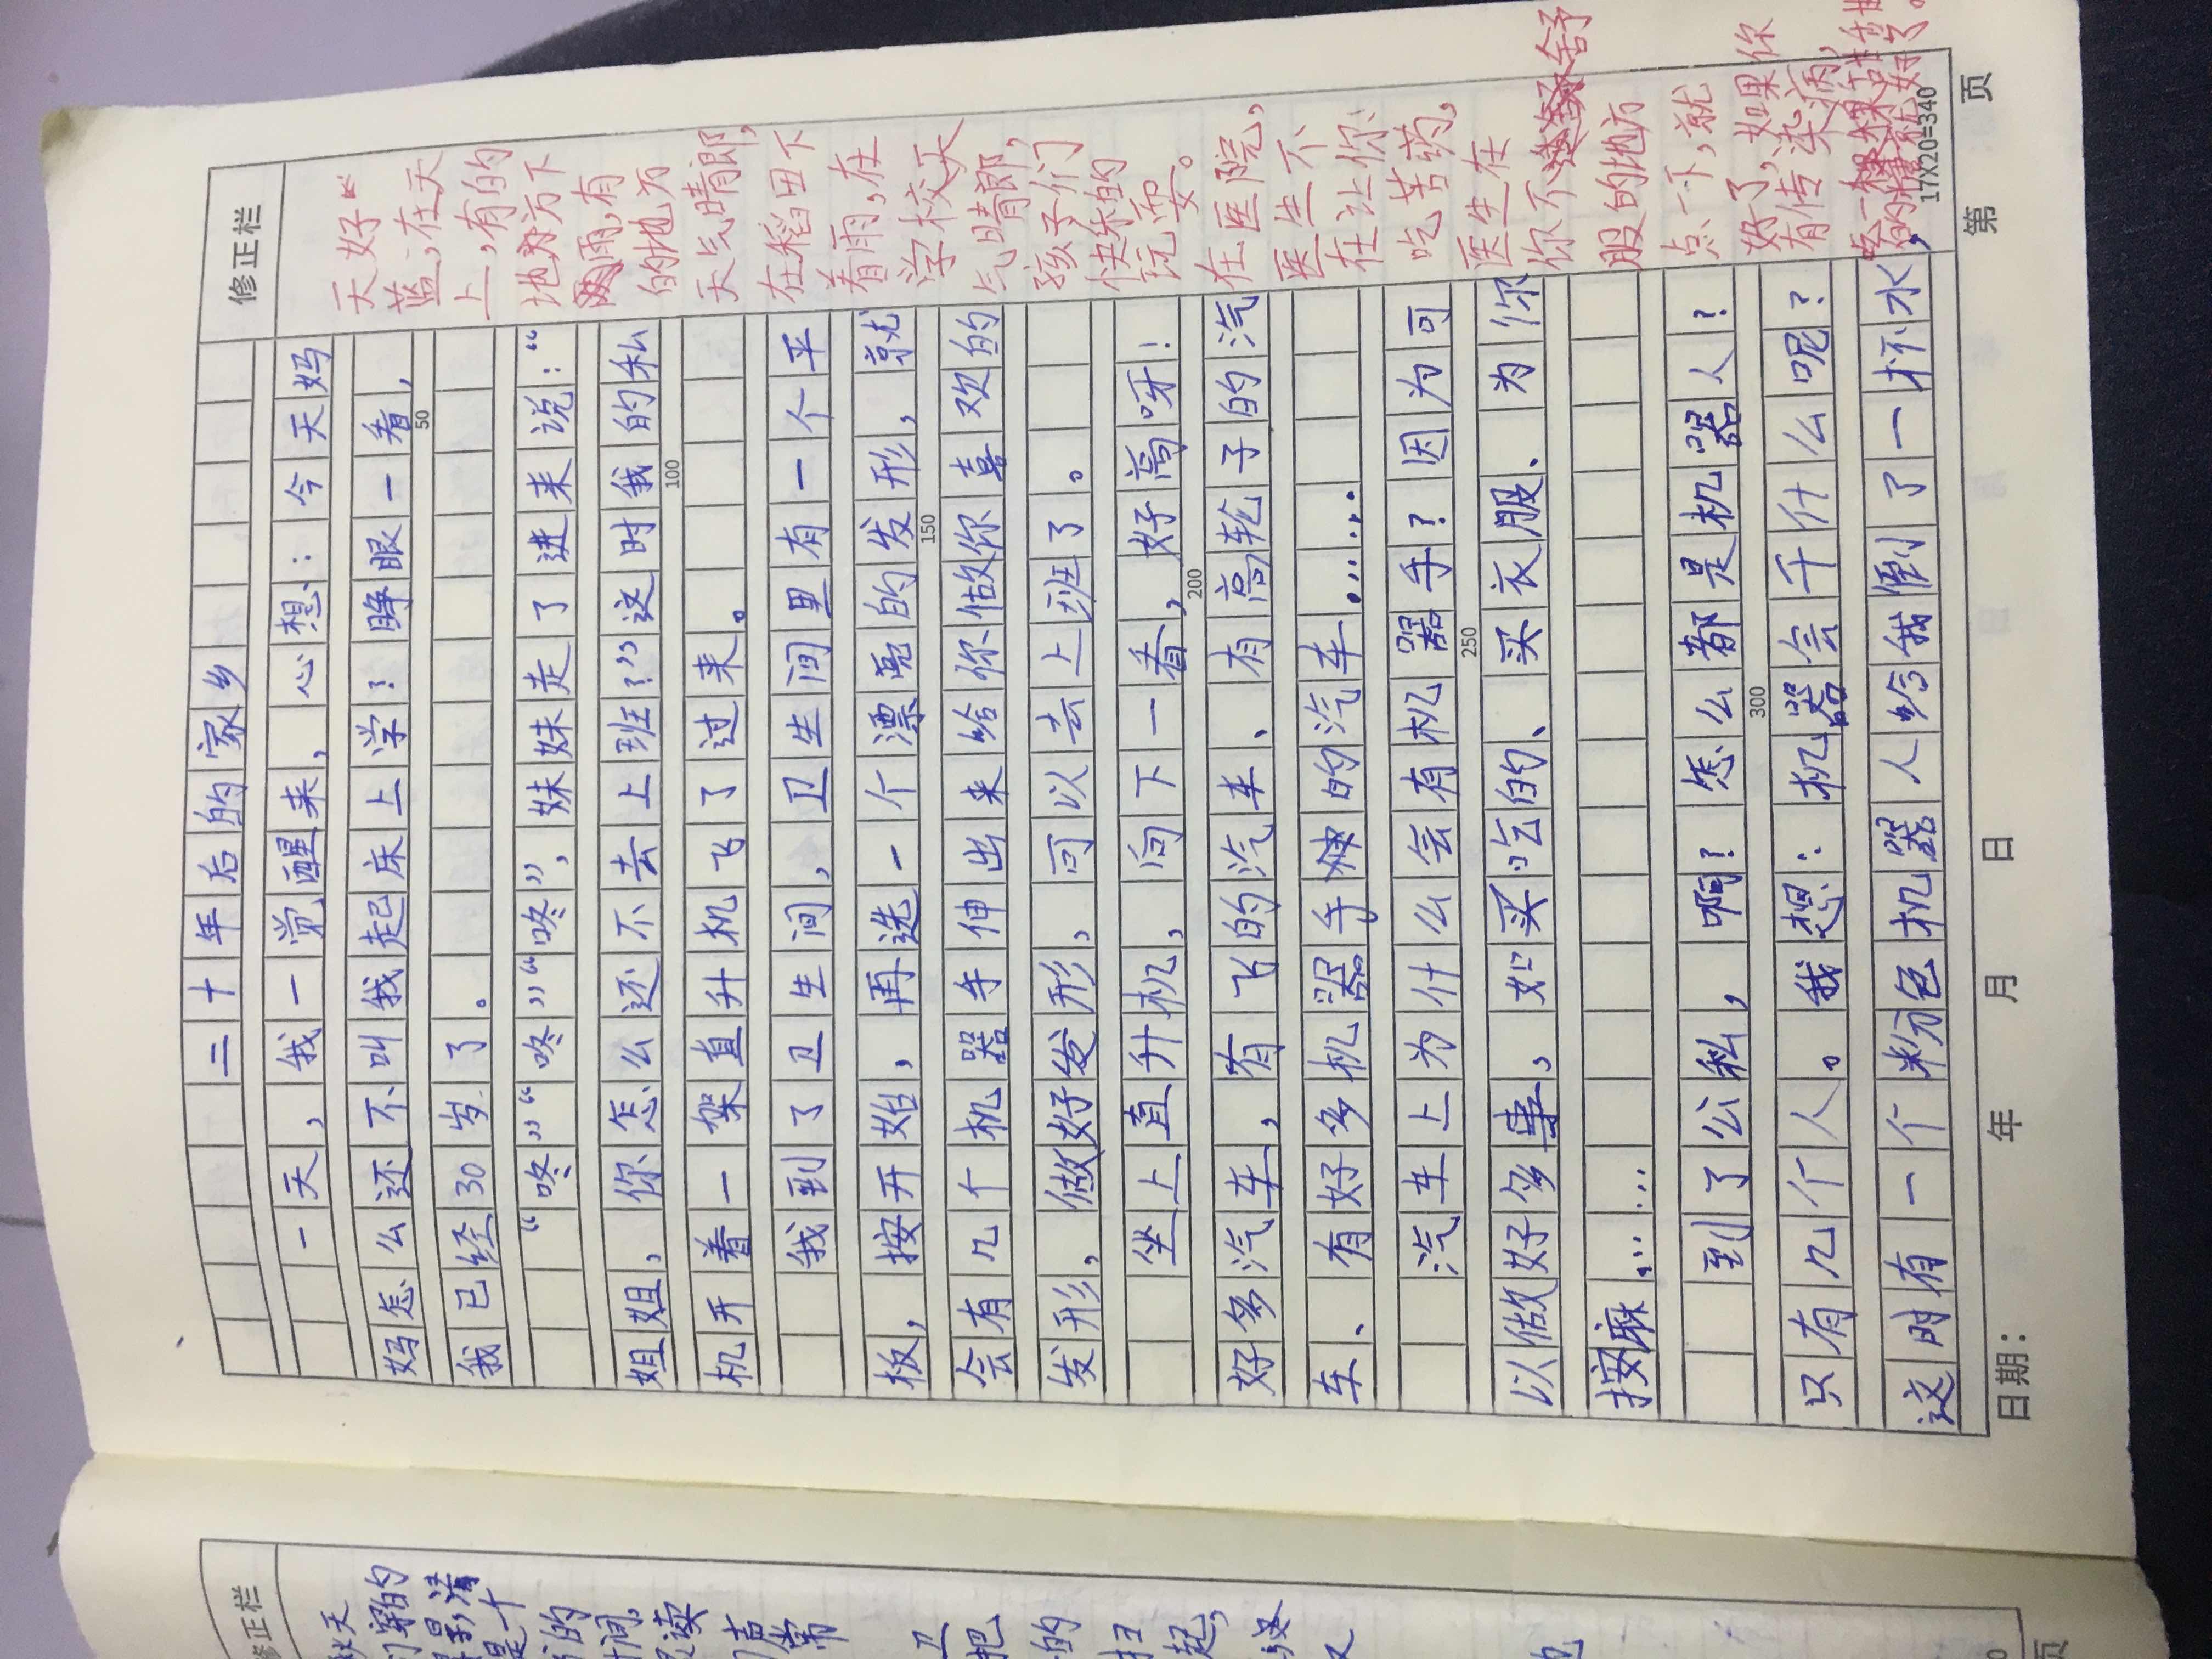 二十年后的家乡
一天，我一觉醒来，心想：今天妈
妈怎么还不叫我起床上学？睁眼一看，
我已经30岁了。
“咚”“咚”“咚”，妹妹走了进来说：“
姐姐，你怎么还不去上班？”这时我的私
机开着一架直升机飞了过来。
我到了卫生间，卫生间里有一个平
板，按开始，再选一个漂亮的发形，就
会有几个机器手伸出来给你做你喜欢的
发形，做好发形，可以去上班了。
坐上直升机，向下一看，好高呀！
好多汽车，有飞的汽车、有高轮子的汽
车、有好多机器手臂的汽车……
汽车上为什么会有机器手？因为可
以做好多事，如买吃的、买衣服、为你
按麻……
到了公私，啊？怎么都是机器人？
只有几个人。我想：机器会干什么呢？
这时有一个粉色机器人给我倒了一杯水，
50
100
150
200
250
300
17X20=340
修正栏
天好
蓝，在天
上，有的
地方下
雨，有
的地方
天气晴郎，
在稻田下
着雨，在
学校天
气晴郎，
孩子们
快乐的
玩耍。
在医院，
医生不
在让你
吃苦药，
医生在
你不舒
服的地方
点一下，就
好了，如果你
有传染病，
日期：　年　月　日　第　页
修正栏
秋天
的
间，
读
常
卫
把
的
扫
起，
又
页